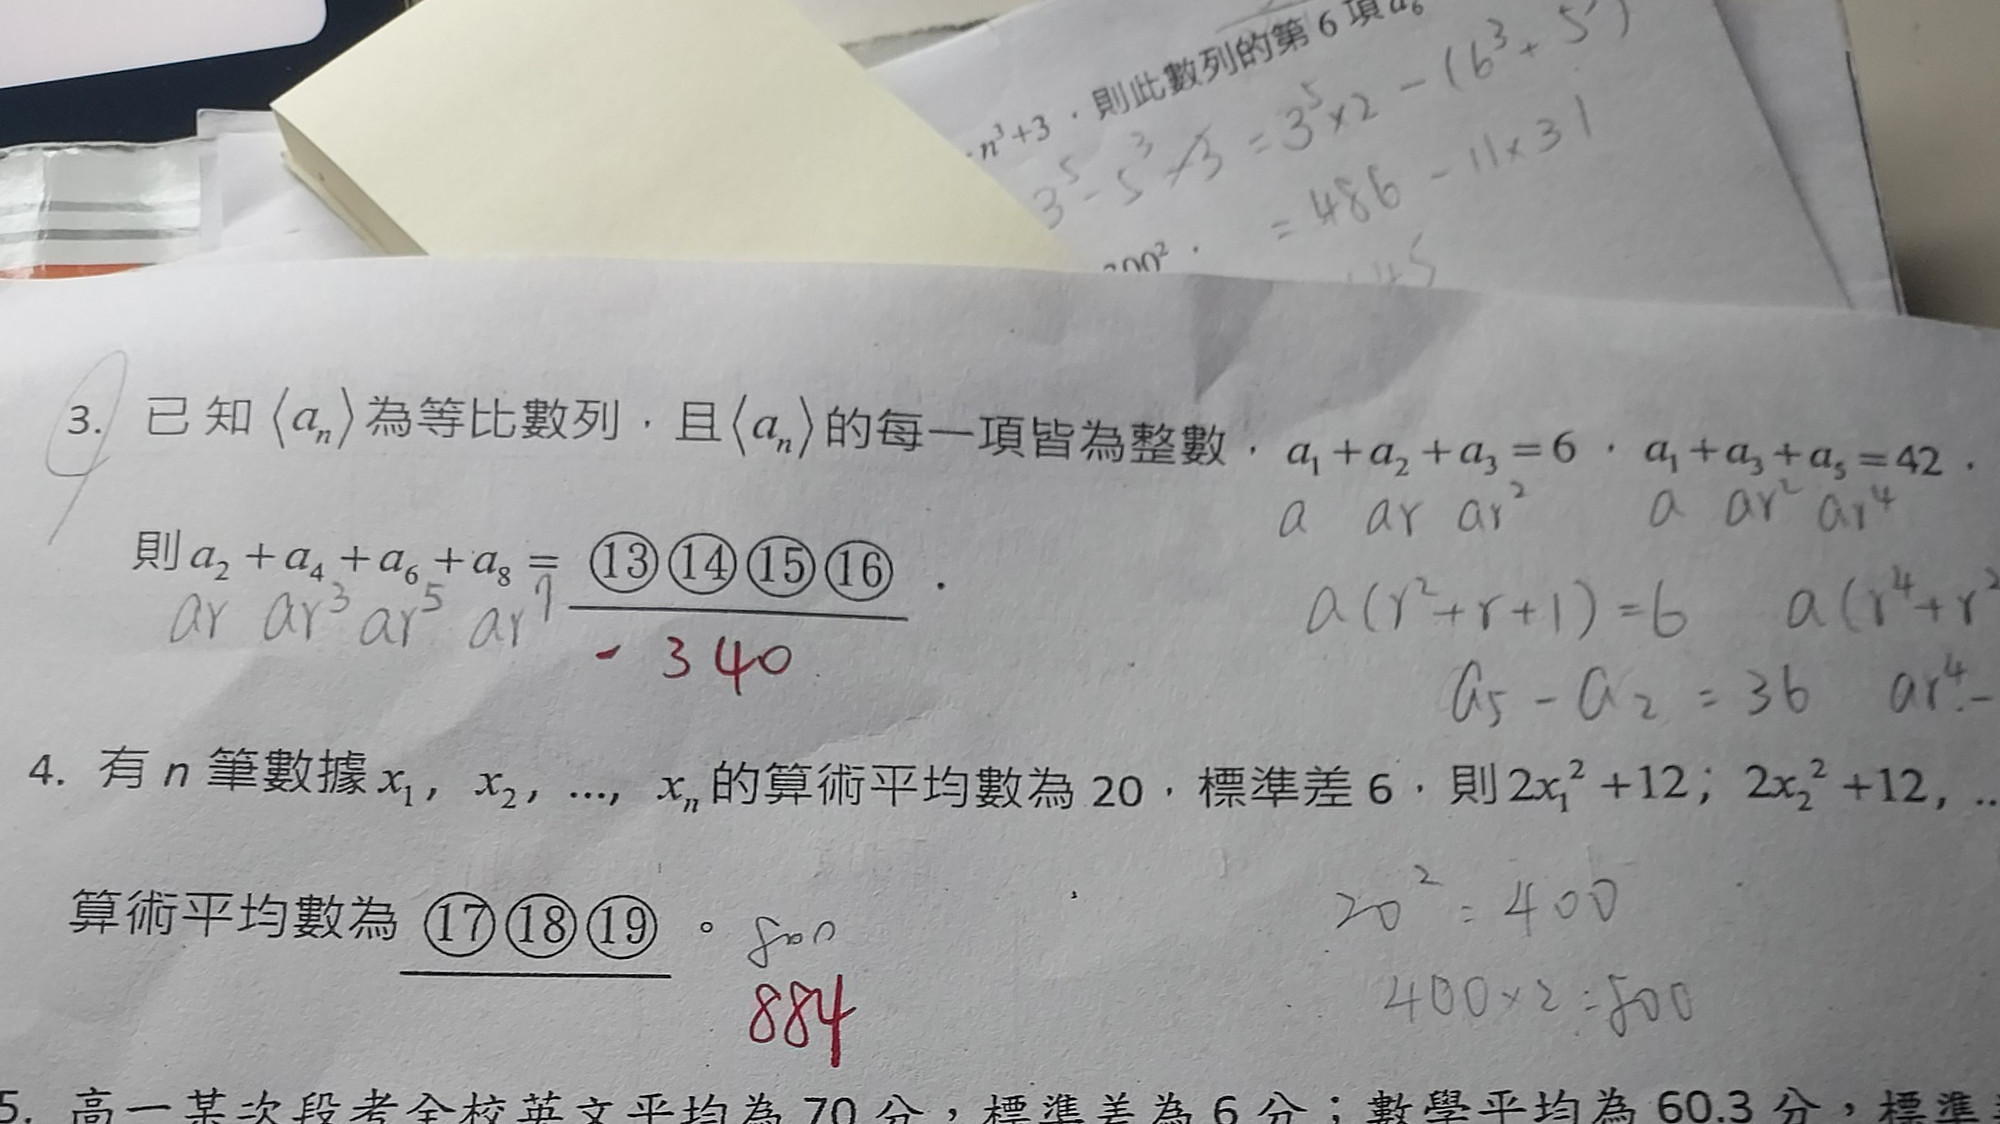 n³+3，則此數列的第 6 項 a₆
3⁵-5³-3 = 3⁵×2-(6³+5³)
= 486-11×31
200²，
145
3. 已知⟨aₙ⟩為等比數列，且⟨aₙ⟩的每一項皆為整數，a₁+a₂+a₃=6，a₁+a₃+a₅=42，
a ar ar² a ar² ar⁴
則 a₂+a₄+a₆+a₈= ⑬⑭⑮⑯ .
ar ar³ ar⁵ ar⁷
a(r²+r+1)=6 a(r⁴+r²
-340
a₅-a₂=36 ar⁴-
4. 有 n 筆數據 x₁, x₂, ..., xₙ的算術平均數為 20，標準差 6，則 2x₁²+12; 2x₂²+12, ..
20²=400
算術平均數為 ⑰⑱⑲ 。 800
400×2=800
884
5. 高一某次段考全校英文平均為 70 分，標準差為 6 分；數學平均為 60.3 分，標準